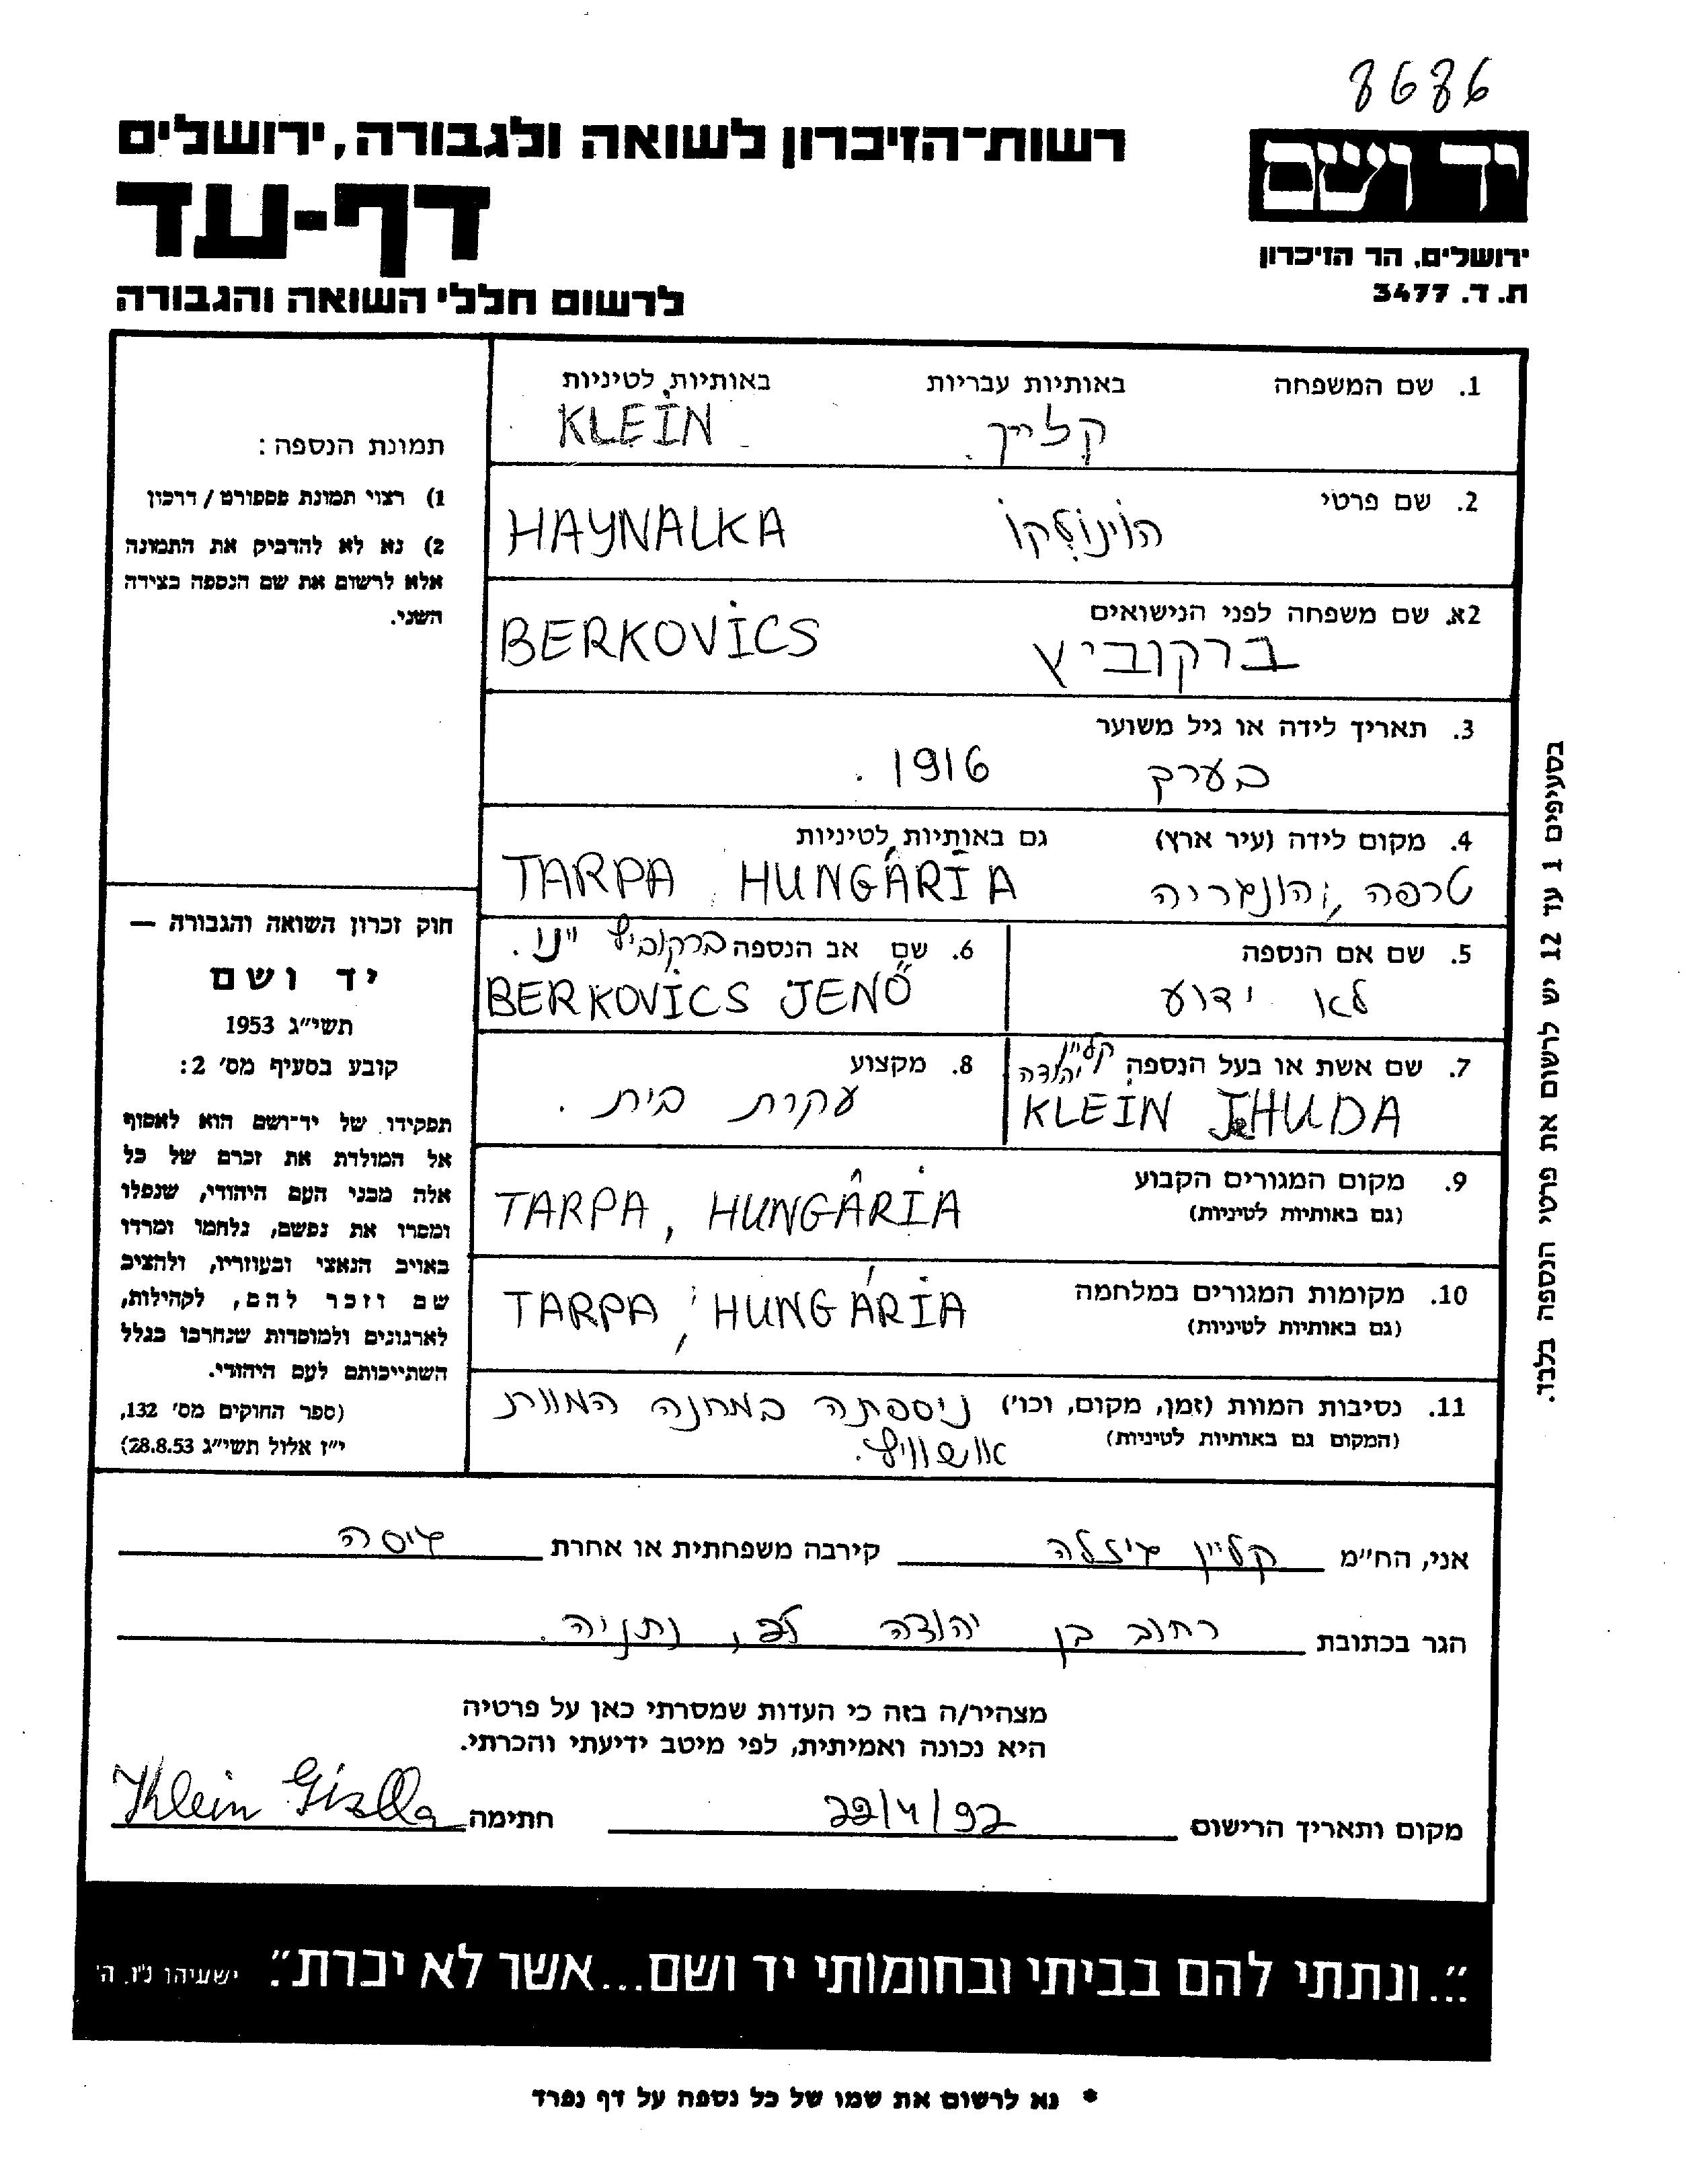 8686
רשות־הזיכרון לשואה ולגבורה, ירושלים
יד ושם
דף-עד
ירושלים, הר הזיכרון
ת. ד. 3477
לרשום חללי השואה והגבורה
1. שם המשפחה באותיות עבריות באותיות לטיניות
קליין KLEIN
2. שם פרטי
הוינולקו HAYNALKA
2א. שם משפחה לפני הנישואים
ברקוביץ BERKOVICS
3. תאריך לידה או גיל משוער
בערך 1916.
4. מקום לידה (עיר ארץ) גם באותיות לטיניות
טרפה, הונגריה TARPA HUNGÁRIA
5. שם אם הנספה
לא ידוע
6. שם אב הנספה ברקוביץ ינו.
BERKOVICS JENŐ
7. שם אשת או בעל הנספה קליין יהודה
KLEIN JEHUDA
8. מקצוע
עקרת בית.
9. מקום המגורים הקבוע
(גם באותיות לטיניות)
TARPA, HUNGÁRIA
10. מקומות המגורים במלחמה
(גם באותיות לטיניות)
TARPA, HUNGÁRIA
11. נסיבות המוות (זמן, מקום, וכו') ניספתה במחנה המוות
(המקום גם באותיות לטיניות) אושוויץ.
תמונת הנספה:
1) רצוי תמונת פספורט / דרכון
2) נא לא להדביק את התמונה
אלא לרשום את שם הנספה בצידה
השני.
חוק זכרון השואה והגבורה —
יד ושם
תשי"ג 1953
קובע בסעיף מס' 2:
תפקידו של יד־ושם הוא לאסוף
אל המולדת את זכרם של כל
אלה מבני העם היהודי, שנפלו
ומסרו את נפשם, נלחמו ומרדו
באויב הנאצי ובעוזריו, ולהציב
שם וזכר להם, לקהילות,
לארגונים ולמוסדות שנחרבו בגלל
השתייכותם לעם היהודי.
(ספר החוקים מס' 132,
י"ז אלול תשי"ג 28.8.53)
בסעיפים 1 עד 12 יש לרשום את פרטי הנספה בלבד.
אני, הח"מ קליין גיזלה קירבה משפחתית או אחרת גיסה
הגר בכתובת רחוב בן יהודה נתניה.
מצהיר/ה בזה כי העדות שמסרתי כאן על פרטיה
היא נכונה ואמיתית, לפי מיטב ידיעתי והכרתי.
מקום ותאריך הרישום 22/4/92 חתימה Klein Gizella
"...ונתתי להם בביתי ובחומותי יד ושם...אשר לא יכרת". ישעיהו נ"ו. ה'
* נא לרשום את שמו של כל נספה על דף נפרד